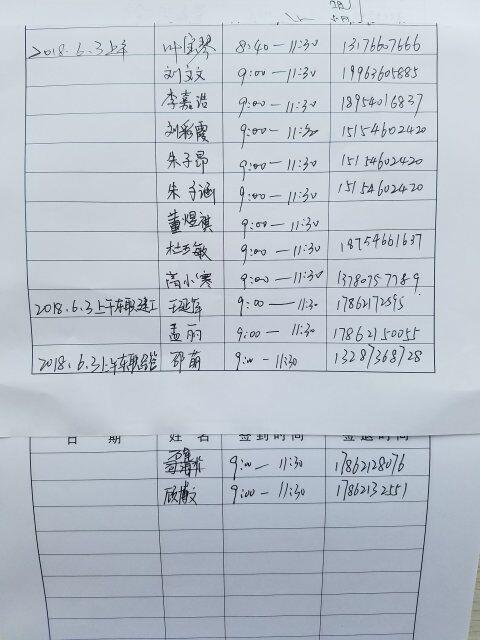 2018.6.3上午 叶宝琴 8:40—11:30 13176607666
刘文文 9:00—11:30 19963605885
李嘉浩 9:00—11:30 18954016837
刘彩霞 9:00—11:30 15154602420
朱子昂 9:00—11:30 15154602420
朱子涵 9:00—11:30 15154602420
董煜祺 9:00—11:30
杜玉敏 9:00—11:30 18754661637
高小寒 9:00—11:30 13780757789
2018.6.3上午东职建工 9:00—11:30 17862172595
孟丽 9:00—11:30 17862150055
2018.6.3上午东职会 邵萌 9:00—11:30 13287368728
日 期 姓 名 签到时间 签退时间
9:00—11:30 17862128076
顾 文 9:00—11:30 17862132551